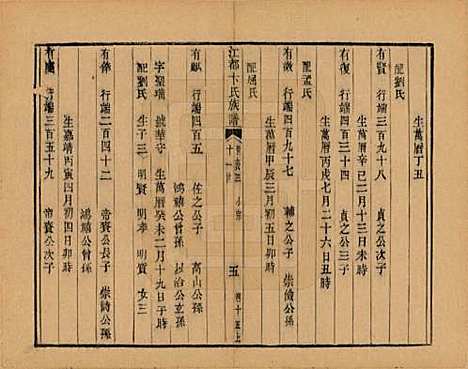 配劉氏
生萬曆丁丑
有賢 行端三百九十八 貞之公次子
生萬曆辛巳二月十三日未時
有復 行端四百三十四 貞之公三子
生萬曆丙戌七月二十六日丑時
配孟氏
有徵 行端四百九十七 輔之公子 崇儔公孫
生萬曆甲辰三月初五日卯時
配屠氏
江都卞氏族譜
十一世
五
四十五上
有麒 行端四百五 佐之公子 高山公孫
鴻禧公曾孫 以治公玄孫
字聖瑞 號華守 生萬曆癸未二月十九日子時
配劉氏 生子三 明賢 明孝 明實 女三
有倖 行端二百四十二 帝賚公長子 崇儔公孫
鴻禧公曾孫
生嘉靖丙寅四月初四日卯時
行端三百五十九 帝賚公次子